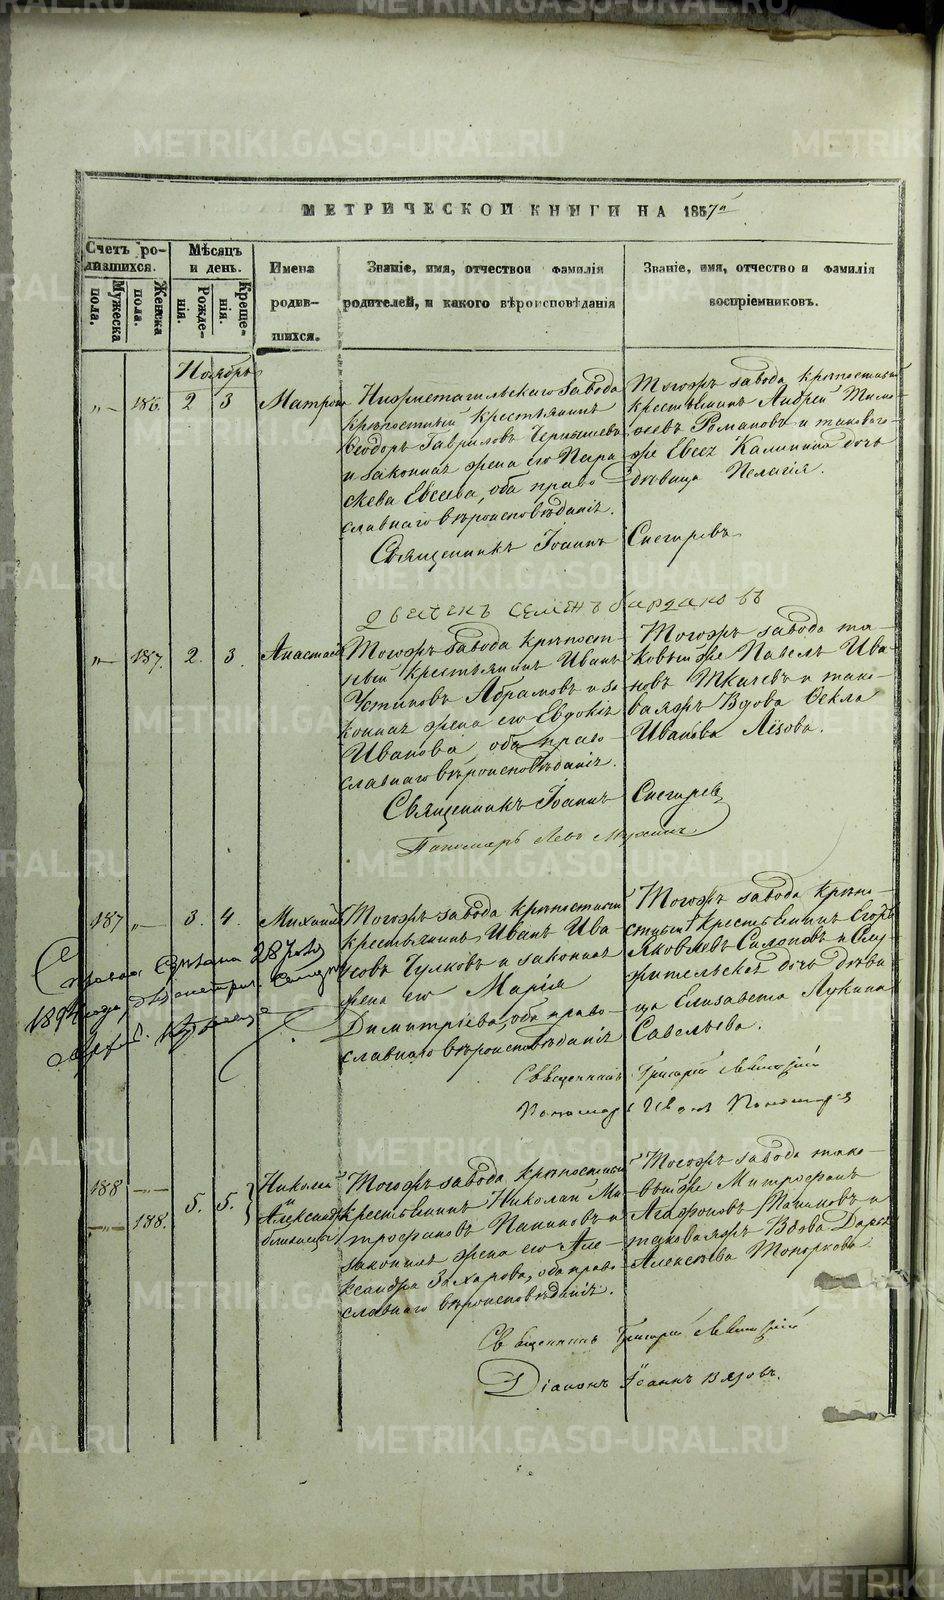 МЕТРИЧЕСКОЙ КНИГИ НА 1857й
Счетъ ро-
дившихся.
Мужеска пола.
Женска пола.
Мѣсяцъ
и день.
Рожде-
нія.
Креще-
нія.
Имена
родив-
шихся.
Званіе, имя, отчество и фамилія
родителей, и какого вѣроисповѣданія
Званіе, имя, отчество и фамилія
воспріемниковъ.
Ноябрь
"— 186. 2 3 Матрона
Нижнетагильскаго завода
крѣпостный крестьянинъ
Ѳеодоръ Гавриловъ Чернышевъ
и законная жена его Пара-
скева Евсеева, оба право-
славнаго вѣроисповѣданія.
Тогожъ завода крѣпостный
крестьянинъ Андрей Тимо-
ѳеевъ Романовъ и таковаго-
же Евсея Калинина дочь
дѣвица Пелагія.
Священникъ Іоаннъ Снегиревъ
Семенъ
"— 187. 2. 3. Анастасія
Тогожъ завода крѣпост-
ный крестьянинъ Иванъ
Устиновъ Абрамовъ и за-
конная жена его Евдокія
Иванова, оба право-
славнаго вѣроисповѣданія.
Тогожъ завода та-
ковый же Павелъ Ива-
новъ Ткачевъ и тако-
ваяжъ Вдова Ѳекла
Иванова Лізова.
Священникъ Іоаннъ Снегирев
Пономарь Левъ
187 "— 3. 4. Михаилъ
Тогожъ завода крѣпостный
крестьянинъ Иванъ Ива-
новъ Чулковъ и законная
жена его Марія
Димитріева, оба право-
славнаго вѣроисповѣданія
Тогожъ завода крѣпо-
стный крестьянинъ Егоръ
Яковлевъ Силоновъ и Слу-
жительская дочь дѣви-
ца Елизавета Лукина
Савельева.
28
1894 года
Священникъ Григорій Левитскій
Пономарь Иванъ
188 "—
"— 188. 5. 5. Николай
и
Александра
близнецы
Тогожъ завода крѣпостный
крестьянинъ Николай Ми-
трофановъ Паниновъ и
законная жена его Але-
ксандра Захарова, оба право-
славнаго вѣроисповѣданія.
Тогожъ завода тако-
выйже Митрофанъ
Агафоновъ Паниновъ и
таковаяжъ Вдова Дарья
Алексѣева Топоркова
Священникъ Григорій Левитскій
Діаконъ Іоаннъ Вязовъ.
METRIKI.GASO-URAL.RU